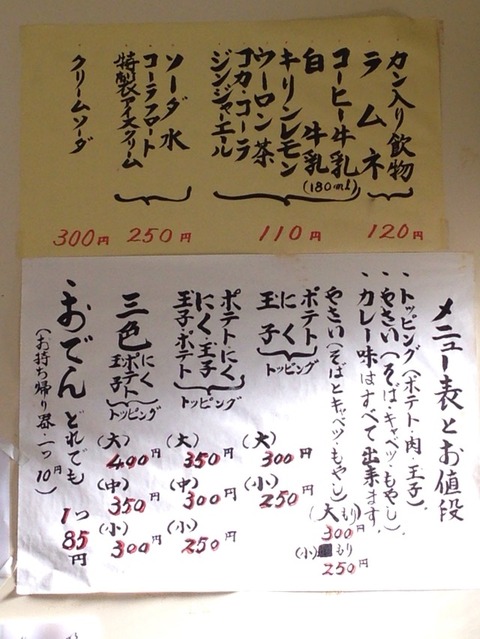 カン入り飲物
ラムネ
120円
コーヒー牛乳
白牛乳
(180ml)
キリンレモン
ウーロン茶
コカ・コーラ
ジンジャーエール
110円
ソーダ水
コーラフロート
特製アイスクリーム
250円
クリームソーダ
300円
メニュー表とお値段
・トッピング(ポテト・肉・玉子)。
・やさい(そば・キャベツ・もやし)。
・カレー味はすべて出来ます。
やさい(そばとキャベツ・もやし)
(大もり)
300円
(小)もり
250円
ポテト
にく
玉子
トッピング
(大)
300円
(小)
250円
ポテトにく
にく玉子
玉子ポテト
トッピング
(大)
350円
(中)
300円
(小)
250円
三色
にく
ポテト
玉子
トッピング
(大)
400円
(中)
350円
(小)
300円
・おでん どれでも
1つ
85円
(お持ち帰り容器・一つ10円)